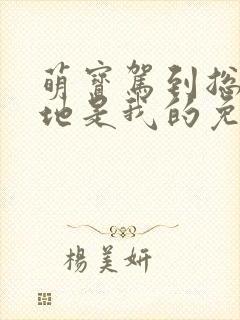 萌寶駕到總
地是我的兔
楊美妍